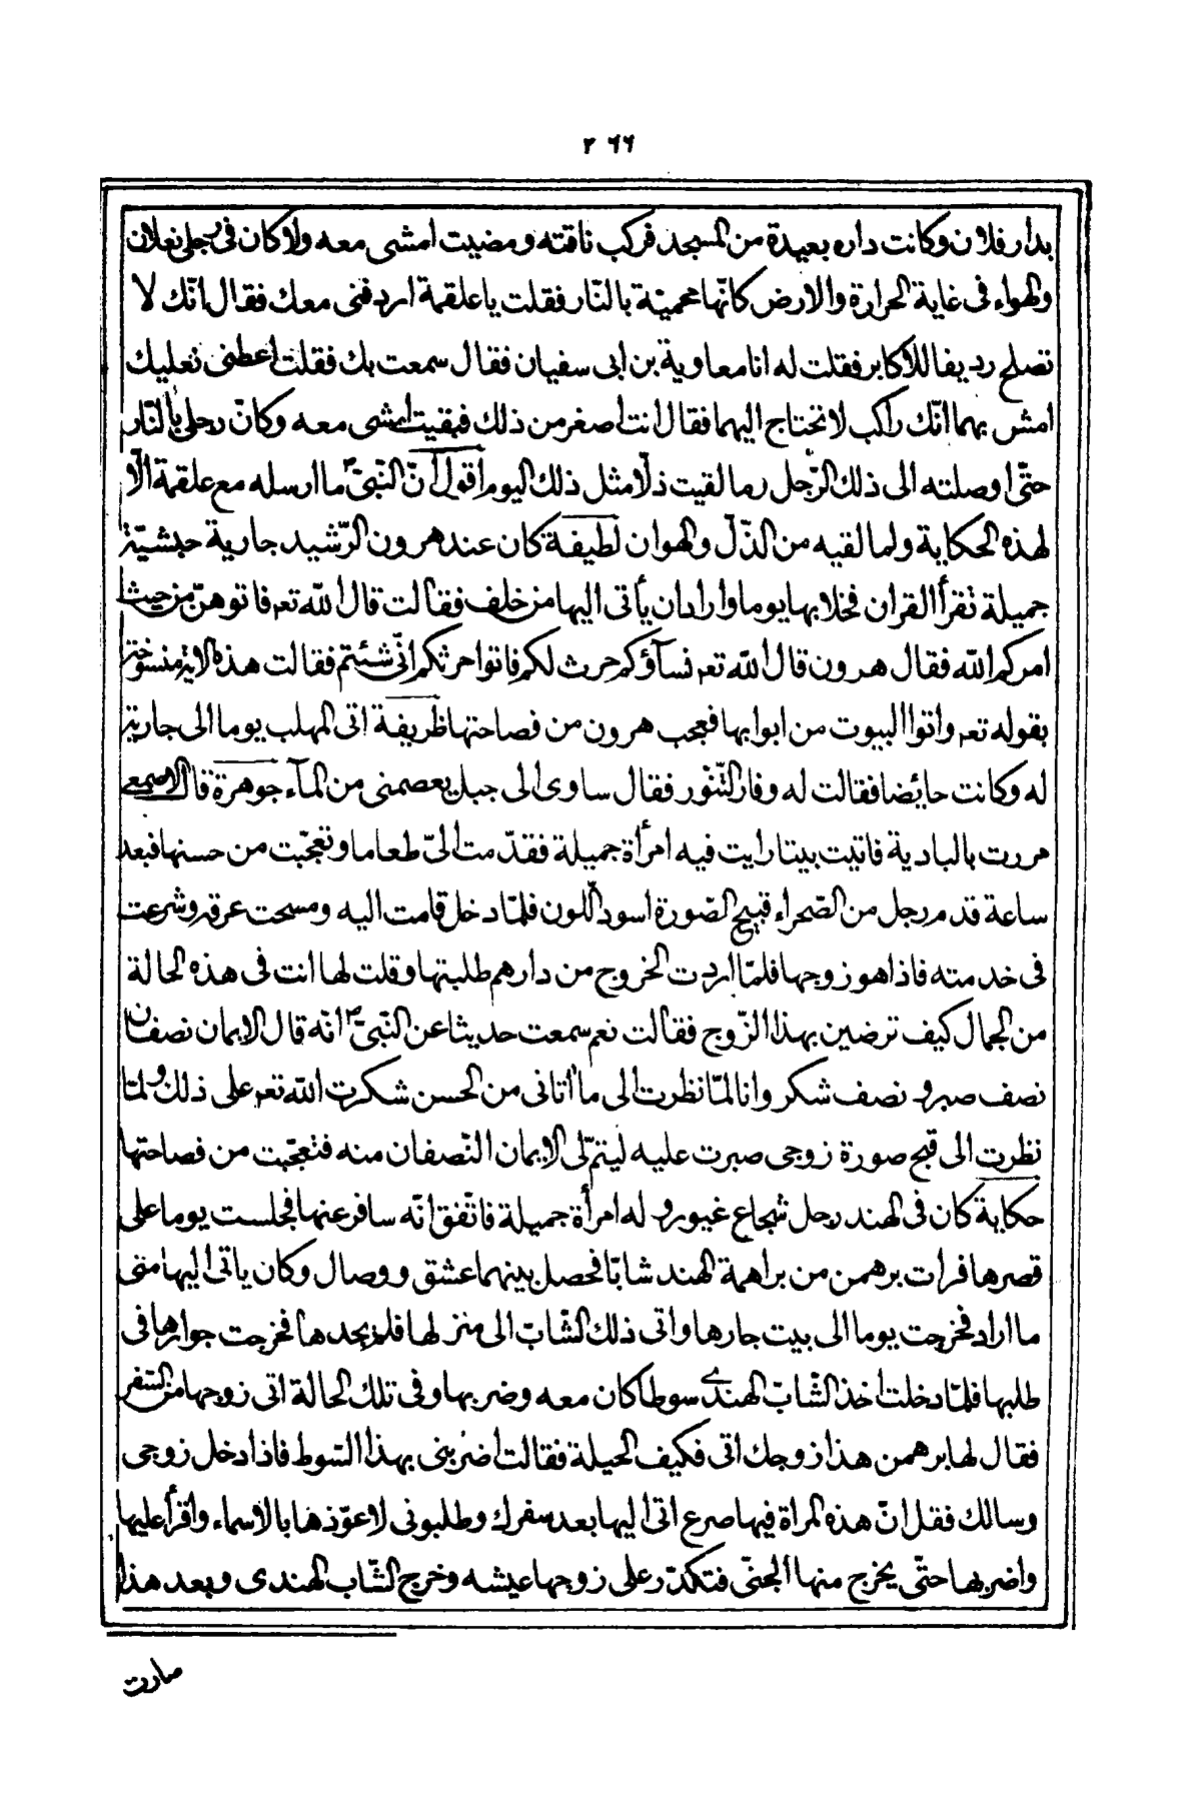 ٢٦٦
بدار فلان وكانت داره بعيدة من المسجد فركب ناقته ومضيت امشى معه ولا كان فى رجلى نعلان
والهواء فى غاية الحرارة والارض كانّها محميّة بالنّار فقلت يا علقمة اردفنى معك فقال انّك لا
تصلح رديفا للاكابر فقلت له انا معاوية بن ابى سفيان فقال سمعت بك فقلت اعطنى نعليك
امش بهما انّك راكب لا تحتاج اليهما فقال انت اصغر من ذلك فبقيت امشى معه وكانّ رجلى بالنّار
حتّى اوصلته الى ذلك الرّجل وما لقيت ذلّا مثل ذلك اليوم اقول انّ النّبىّ ص ما ارسله مع علقمة الّا
لهذه الحكاية ولما لقيه من الذّلّ والهوان لطيفة كان عند هرون الرّشيد جارية حبشيّة
جميلة تقرأ القران فخلا بها يوما واراد ان يأتى اليها من خلف فقالت قال اللّه تعه فاتوهنّ من حيث
امركم اللّه فقال هرون قال اللّه تعه نسآؤكم حرث لكم فاتوا حرثكم انّى شئتم فقالت هذه الاية منسوخة
بقوله تعه واتوا البيوت من ابوابها فعجب هرون من فصاحتها ظريفة اتى المهلب يوما الى جارية
له وكانت حائضا فقالت له وفار التّنّور فقال ساوى الى جبل يعصمنى من المآء جوهرة قال الاصمعى
مررت بالبادية فاتيت بيتا رايت فيه امرأة جميلة فقدّمت الىّ طعاما وتعجّبت من حسنها فبعد
ساعة قدم رجل من الصّحراء قبيح الصّورة اسود اللّون فلمّا دخل قامت اليه ومسحت عرقه وشرعت
فى خدمته فاذا هو زوجها فلمّا اردت الخروج من دارهم طلبتها وقلت لها انت فى هذه الحالة
من الجمال كيف ترضين بهذا الزّوج فقالت نعم سمعت حديثا عن النّبىّ ص انّه قال الايمان نصفان
نصف صبر و نصف شكر وانا لمّا نظرت الى ما اتانى من الحسن شكرت اللّه تعه على ذلك ولمّا
نظرت الى قبح صورة زوجى صبرت عليه ليتمّ لى الايمان النّصفان منه فتعجّبت من فصاحتها
حكاية كان فى الهند رجل شجاع غيور و له امرأة جميلة فاتّفق انّه سافر عنها فجلست يوما على
قصرها فرات برهمن من براهمة الهند شابّا فحصل بينهما عشق ووصال وكان ياتى اليها متى
ما اراد فخرجت يوما الى بيت جارها واتى ذلك الشّابّ الى منزلها فلم يجدها فخرجت جوارها فى
طلبها فلمّا دخلت اخذ الشّابّ الهندى سوطا كان معه وضربها وفى تلك الحالة اتى زوجها من السّفر
فقال لها برهمن هذا زوجك اتى فكيف الحيلة فقالت اضربنى بهذا السّوط فاذا دخل زوجى
وسالك فقل انّ هذه المراة فيها صرع اتى اليها بعد سفرك وطلبونى لاعوّذها بالاسماء واقرأ عليها
واضربها حتّى يخرج منها الجنّى فتكدّر على زوجها عيشه وخرج الشّاب الهندى وبعد هذا
صارت